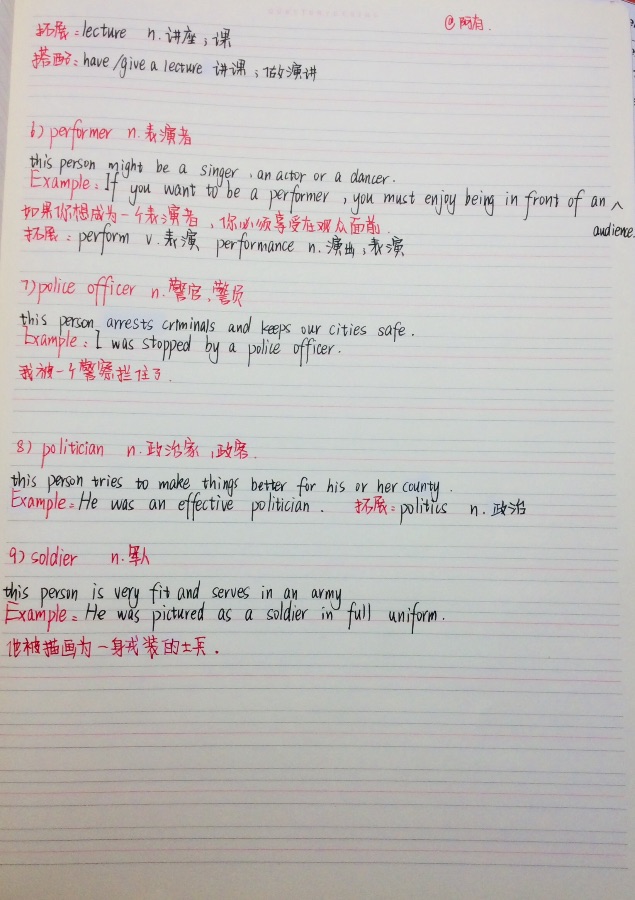 @阿有.
拓展：lecture n. 讲座；课
搭配：have/give a lecture 讲课；做演讲
6) performer n. 表演者
this person might be a singer, an actor or a dancer.
Example: If you want to be a performer, you must enjoy being in front of an ^
audience.
如果你想成为一个表演者，你必须享受在观众面前.
拓展：perform v. 表演 performance n. 演出；表演
7) police officer n. 警官，警员
this person arrests criminals and keeps our cities safe.
Example: I was stopped by a police officer.
我被一个警察拦住了.
8) politician n. 政治家，政客.
this person tries to make things better for his or her county.
Example: He was an effective politician. 拓展：politics n. 政治
9) soldier n. 军人
this person is very fit and serves in an army
Example: He was pictured as a soldier in full uniform.
他被描画为一身戎装的士兵.